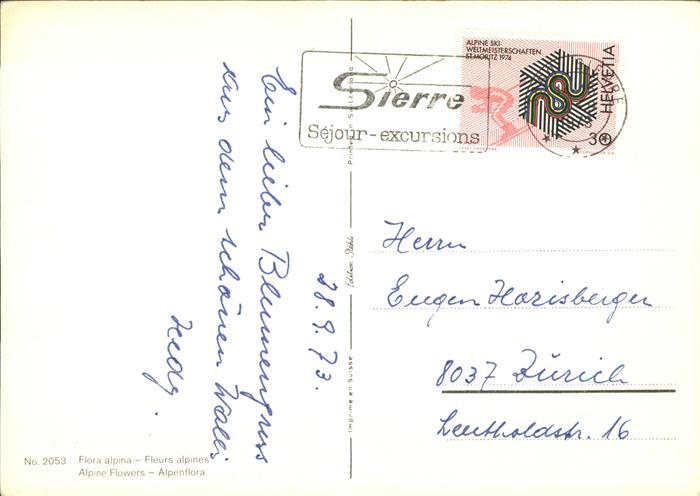 28.9.73.
Ein lieber Blumengruss
aus dem schönen Wallis
Hedy.
No. 2053 Flora alpina – Fleurs alpines
Alpine Flowers – Alpenflora
Imprimé en Suisse
Edition Stehli
Printed in Switzerland
Sierre
Séjour-excursions
ALPINE SKI-
WELTMEISTERSCHAFTEN
ST. MORITZ 1974
HELVETIA
30
Herrn
Eugen Harisberger
8037 Zürich
Leutholdstr. 16